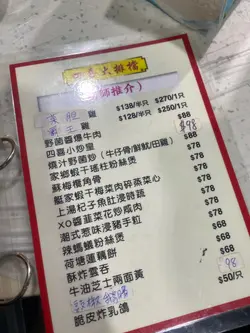 大排檔
師推介)
雞 $138/半只 $270/1只
雞 $128/半只 $250/1只
野菌醬爆牛肉 $88
四喜小炒皇 $98
燒汁野菌炒(牛仔骨/鮮魷/田雞) $88
家鄉蝦干瑤柱粉絲煲 $88
蘇梅欖角骨 $78
蝦干梅菜肉碎蒸菜心 $78
上湯杞子魚肚浸時蔬 $78
XO醬韭菜花炒咸肉 $78
潮式惹味浸豬手粒 $78
辣螞蟻粉絲煲 $68
荷塘蓮藕餅 $78
酥炸雲吞 $68
牛油芝士兩面黃 98
$68
脆皮炸乳鴿 $50/只